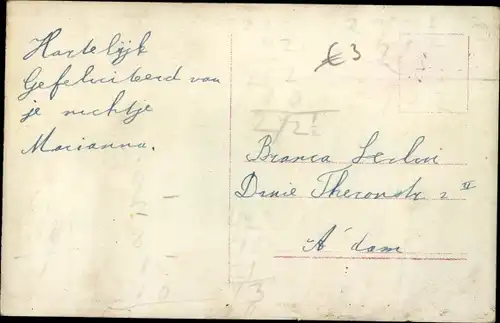 Hartelijk
Gefeliciteerd van
je nichtje
Marianna.
€3
Branca
Danie Theronstr 2 II
A'dam